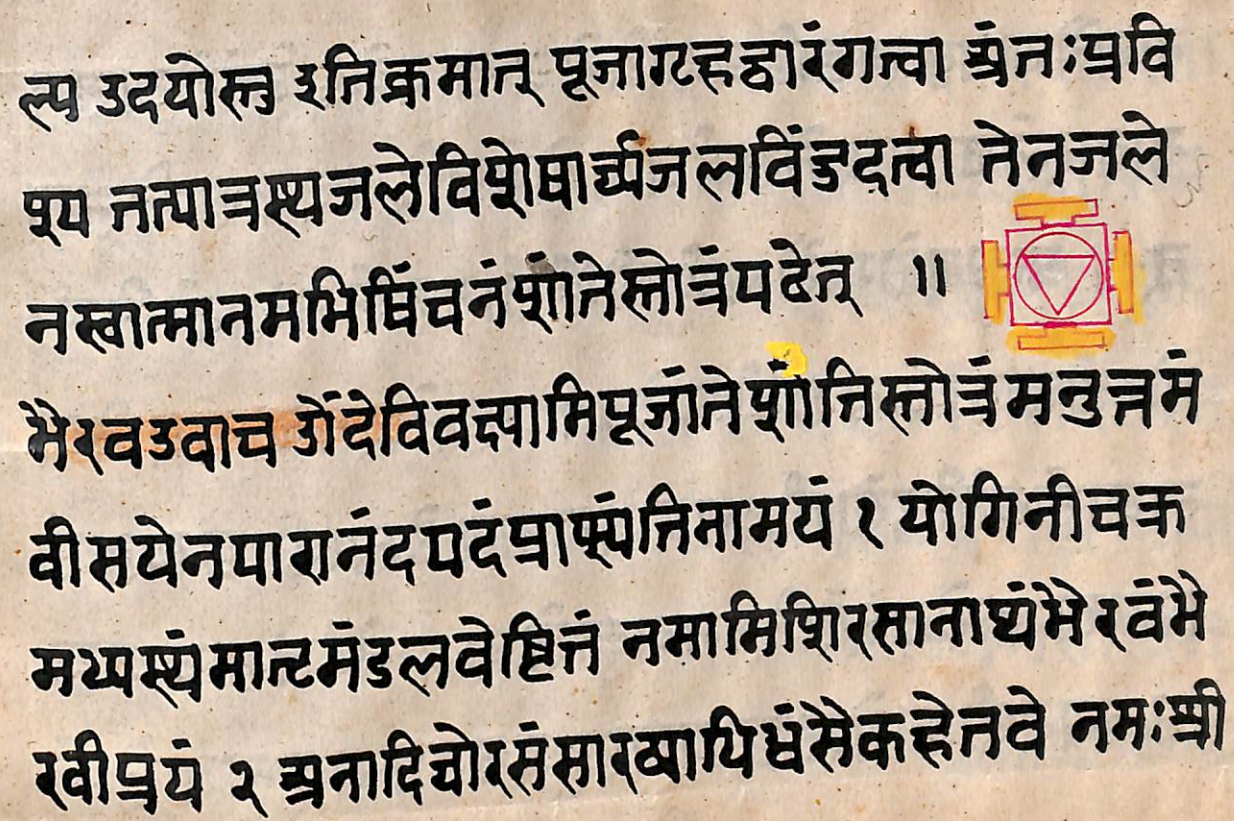 ल्प उदयोस्तु इतिक्रमात् पूजागृहद्वारंगत्वा अंतःप्रवि
श्य तत्पात्रस्थजले विशेषार्घ्यजलविंडुदत्वा तेनजले
नस्वात्मानमभिषिंचनं शांतेस्तोत्रंपठेत् ॥
भैरवउवाच उोंदेविवक्ष्यामिपूजांतेशांतिस्तोत्रंमनुत्तमं
वीसयेनपारानंदपदंप्राप्स्यंतिनामयं १ योगिनीचक्र
मध्यस्थंमातृमंडलवेष्टितं नमामिशिरसानाथंभैरवंभै
रवीप्रयं २ अनादिघोरसंसारव्याधिध्वंसैकहेतवे नमःश्री